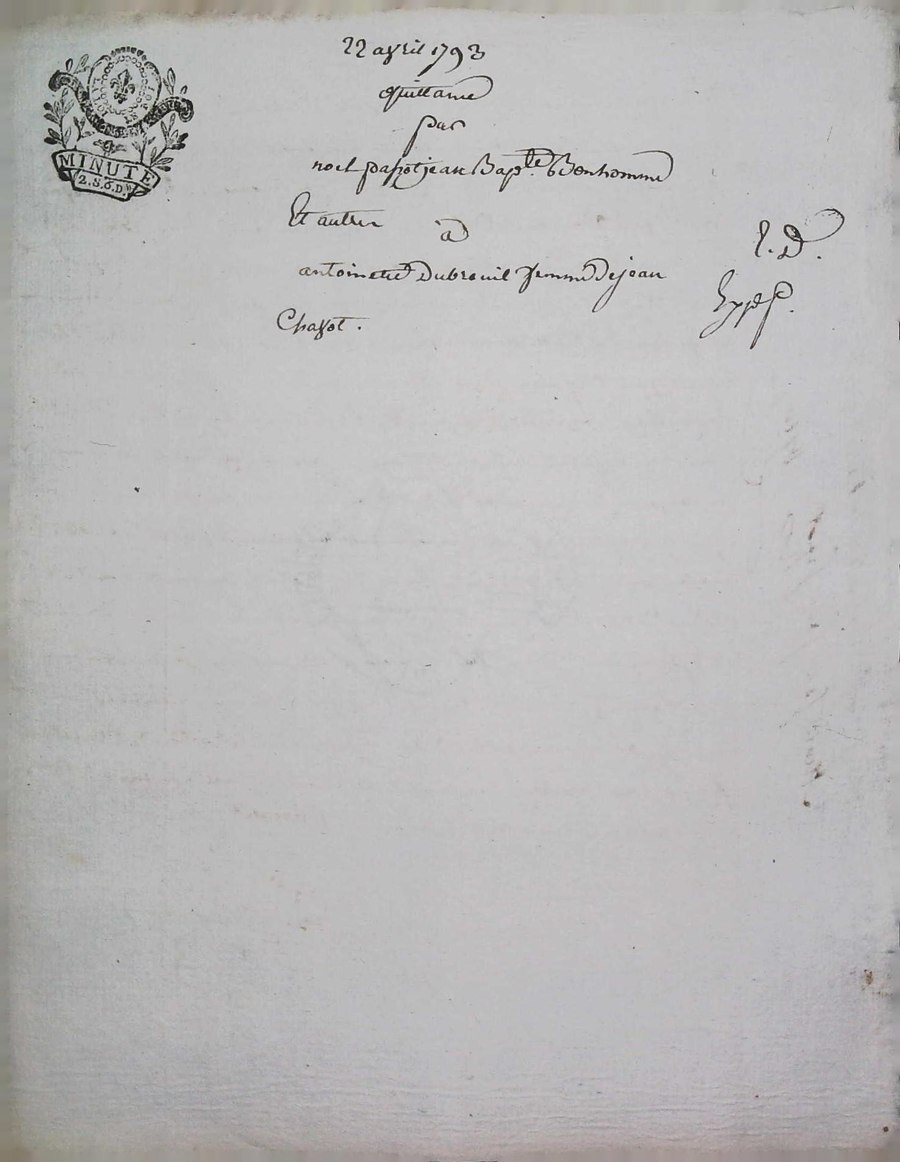 22 avril 1793
quittance
par
noel papot jean Bap.te Bonhomme
Et autres
a
antoinette Dubreuil femme De jean
Chazot.
MINUTE
2.S.6.D.rs